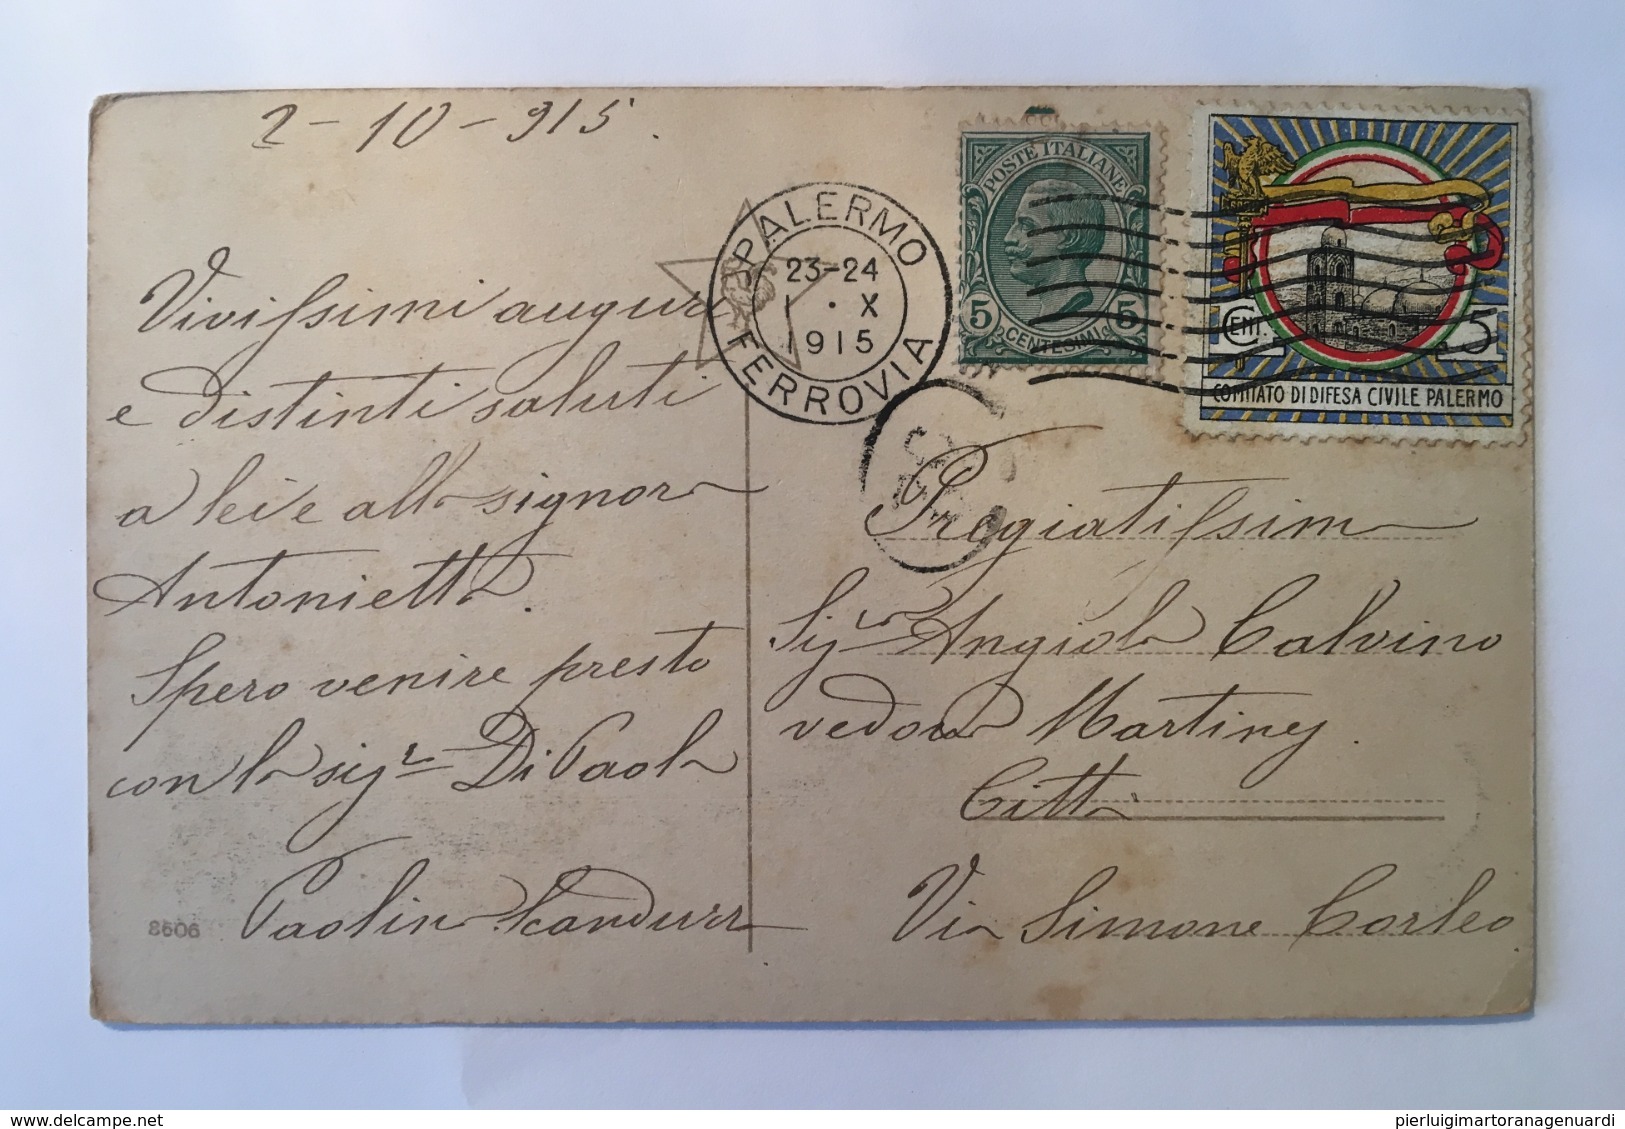 2-10-915.
Vivissimi auguri
e distinti saluti
a lei e alla signora
Antonietta.
Spero venire presto
con la sigra Di Paola
Paolina Scandurra
8506
PALERMO
23-24
1 · X
1915
FERROVIA
POSTE ITALIANE
5 CENTESIMI 5
CENT. 5
COMITATO DI DIFESA CIVILE PALERMO
Pregiatissima
Sigra Angiola Calvino
vedova Martinez.
Città
Via Simone Corleo
pierluigimartoranagenuardi